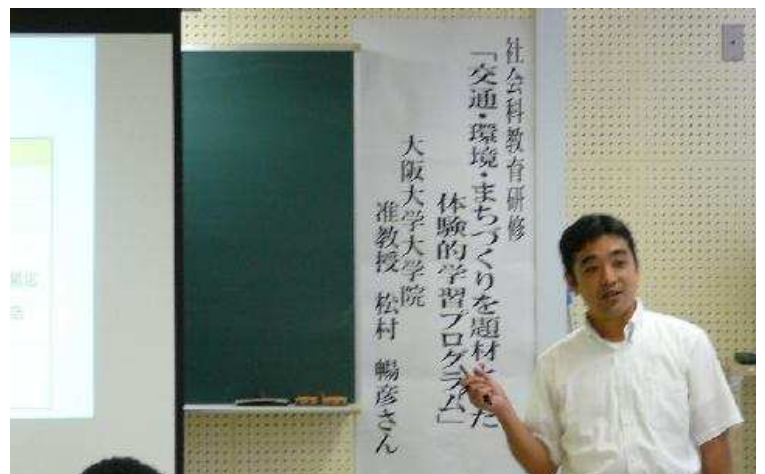 社会科教育研修
「交通・環境・まちづくりを題材とした
体験的学習プログラム」
大阪大学大学院
准教授　松村　暢彦さん